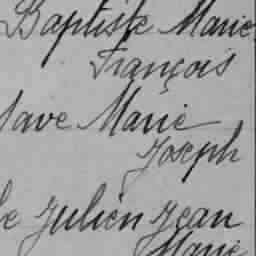 Baptiste Marie
François
Marie
Joseph
Julien Jean
Marie